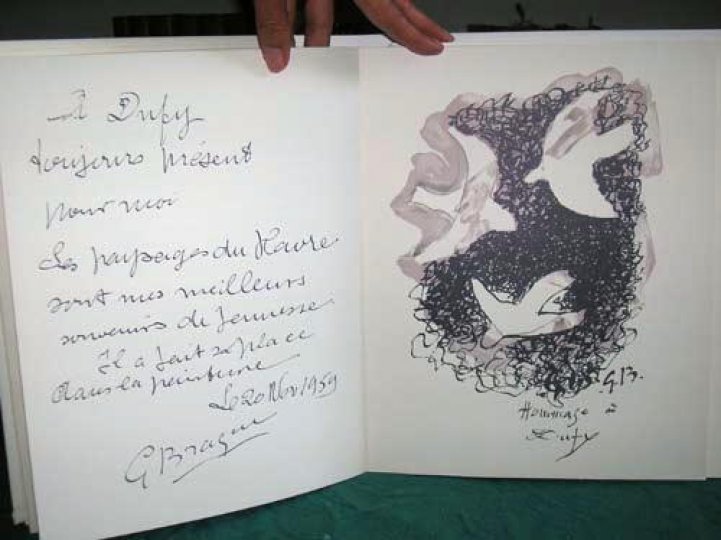 À Dufy
toujours présent
pour moi
Les paysages du Havre
sont mes meilleurs
souvenirs de jeunesse
Il a fait sa place
dans la peinture
Le 20 Nov 1959
G Braque
G.B.
Hommage à
Dufy